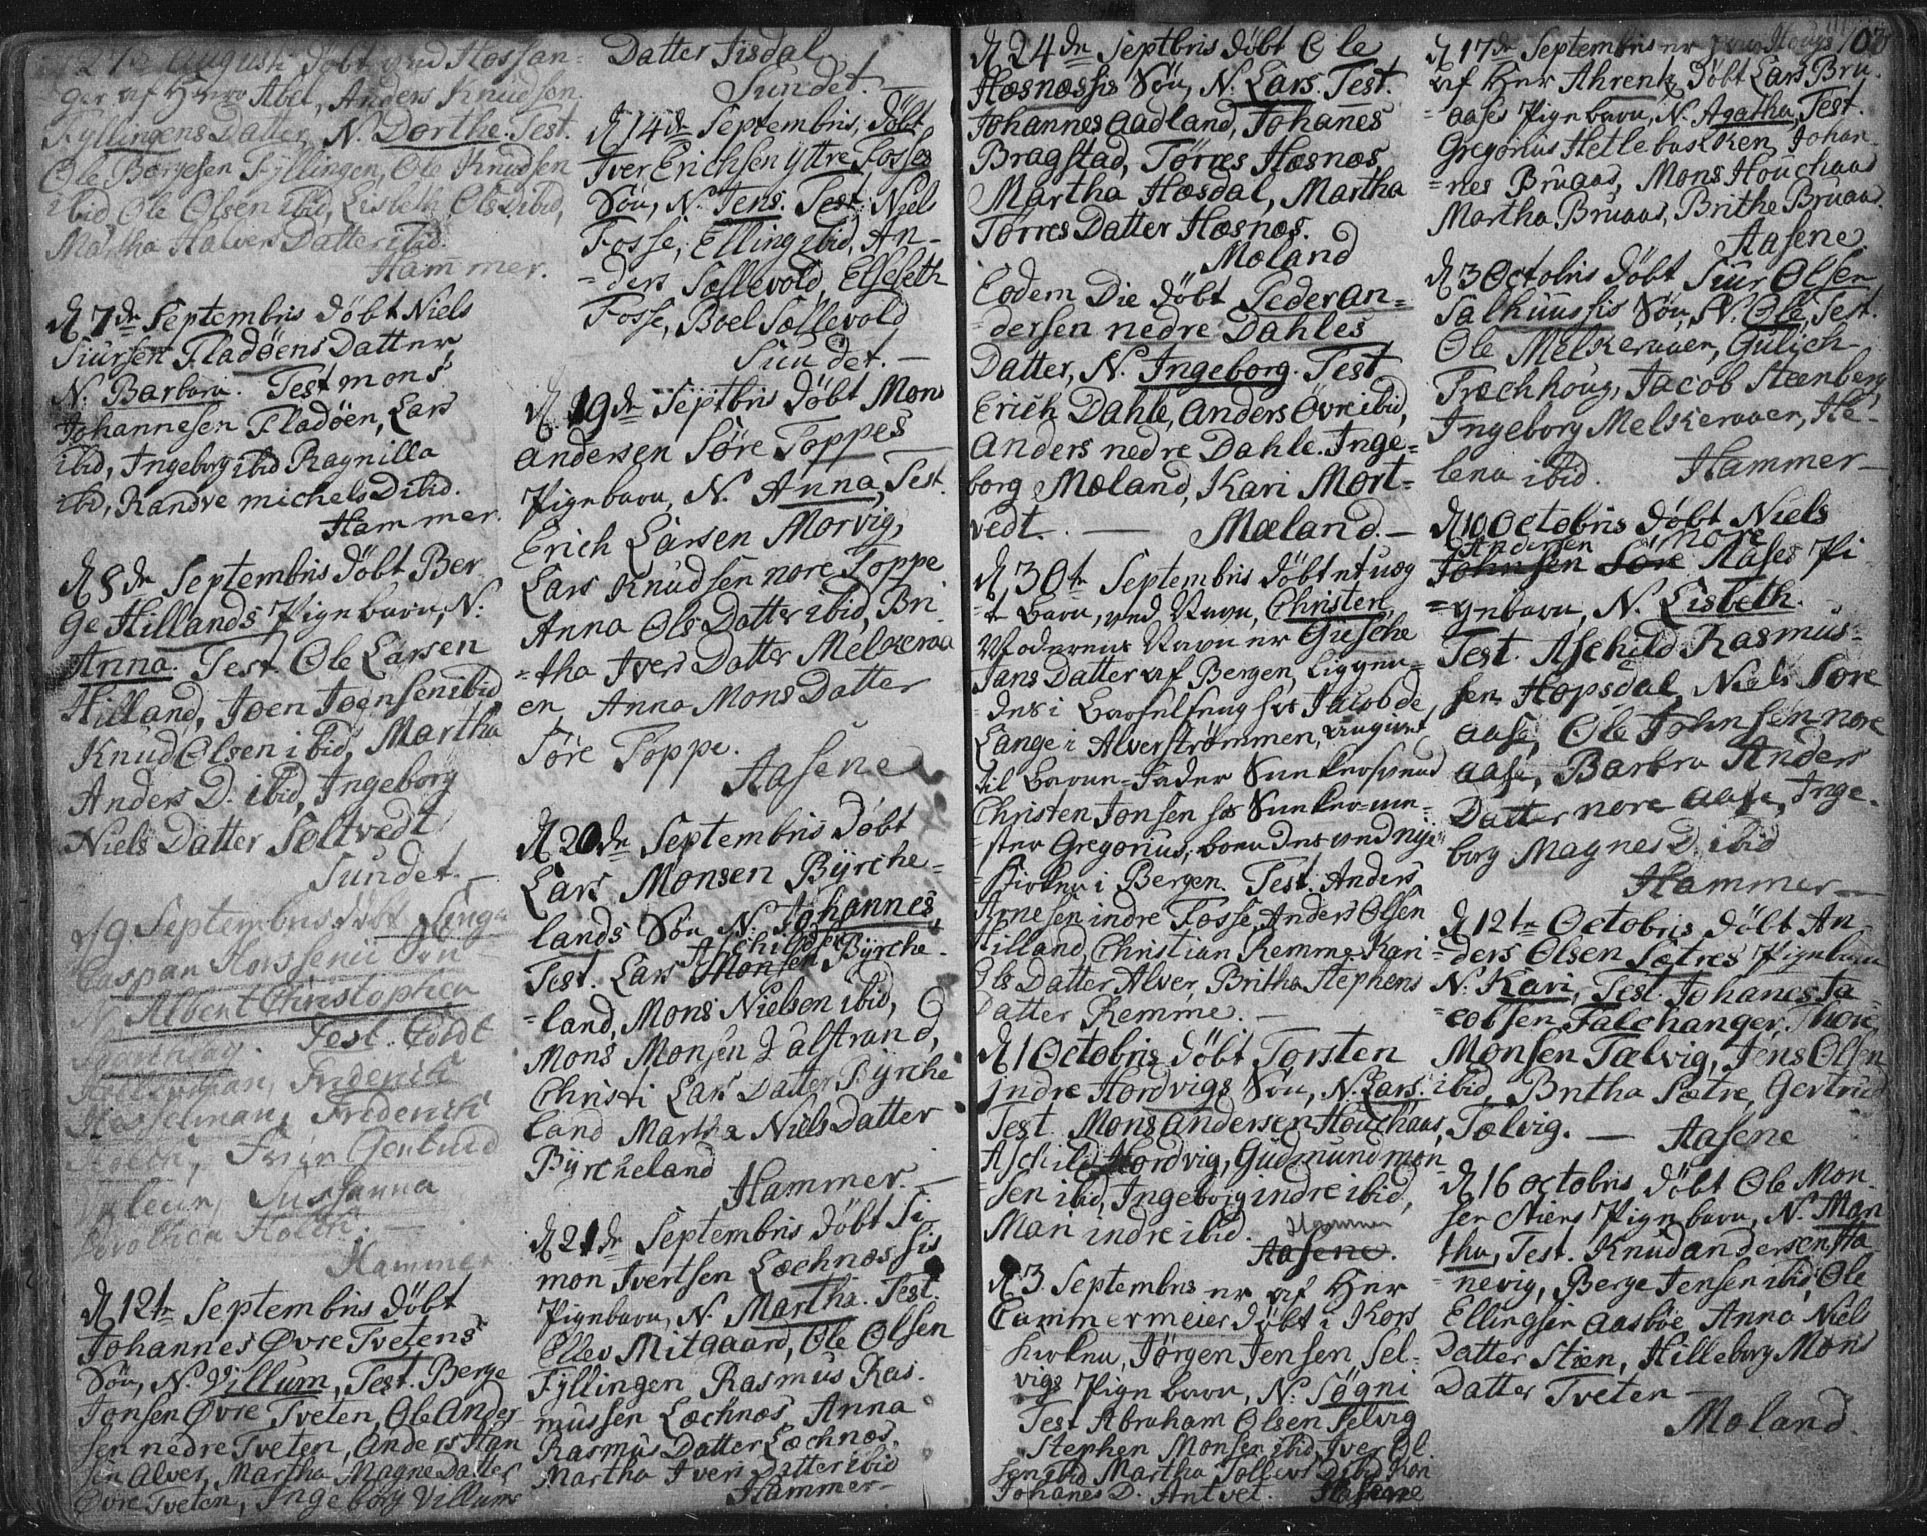 27de Augusti döbt ved Hossan=
ger af Herr Abel, Anders Knudsen
Fyllingens Datter, N. Dorthe. Test.
Ole Börgesen Fyllingen, Ole Knudsen
ibid, Ole Olsen ibid, Lisbeth Ols D. ibid,
Martha Halvers Datter ibid.
Hammer.
d 7de Septembris döbt Niels
Siursen Fladöens Datter
N. Barbara. Test Mons
Johannesen Fladöen, Lars
ibid, Ingeborg ibid Ragnilla
ibid, Randve Michels D ibid.
Hammer.
d 8de Septembris döbt Ber
ge Hillands Pigebarn, N.
Anna. Test. Ole Larsen
Hilland, Joen Joensen ibid
Knud Olsen ibid, Martha
Anders D. ibid, Ingeborg
Niels Datter Soltvedt
Sundet.
d 9 Septembris döbt
Caspar
N. Albert Christopher
Test.
Friderich
Hasselman, Friderich
Holck, Gertrud
Susanna
Dorothea Holck.
Hammer
d 12te Septembris döbt
Johannes Övre Tvetens
Sön, N. Villum, Test. Berge
Jonsen Övre Tveten, Ole Ander
sen nedre Tveten, Anders Han
sen Alver, Martha Magne Datter
Övre Tveten, Ingeborg Villums
Datter Iisdal
Sundet.
d 14de Septembris, döbt
Iver Erichsen yttre Fosses
Sön, N. Jens. Test. Niels
Fosse, Elling ibid, An=
=ders Sællevold, Elsebeth
Fosse, Boel Sællevold
Sundet.
d 19de Septbris döbt Mons
Andersen Söre Toppes
Pigebarn, N. Anna, Test.
Erich Larsen Morvig,
Lars Knudsen nore Toppe
Anna Ols Datter ibid, Bri
=tha Iver Datter Melkeraa
en Anna Mons Datter
Söre Toppe.
Aasene
d 20de Septembris döbt
Lars Monsen Byrche=
lands Sön N. Johannes,
Aschilds
Test. Lars Monsen Byrche=
=land, Mons Nielsen ibid,
Mons Monsen Valstrand,
Christi Lars Datter Byrche
land Martha Niels Datter
Byrcheland
Hammer.
d 21de Septembris döbt Si
mon Ivertsen Lochnæssis
Pigebarn, N. Martha. Test.
Ellev Mitgaard, Ole Olsen
Fyllingen Rasmus Ras.
mussen Lochnæs, Anna
Rasmus Datter Lochnæs,
Martha Ivers Datter ibid
Hammer
d 24de Septbris döbt Ole
Hæsnæssis Sön, N. Lars. Test.
Johannes Aadland, Johanes
Bragstad, Törres Hæsnæs,
Martha Hæsdal, Martha
Törres Datter Hæsnæs.
Mæland
Eodem Die döbt Peder An=
dersen nedre Dahles
Datter, N. Ingeborg. Test
Erich Dahle, Anders Övre ibid,
Anders nedre Dahle. Inge=
borg Mæland, Kari Mort=
vedt. Mæland.
d 30te Septembris döbt et uæg
te barn, ved Navn, Christen,
Moderens Navn er Giesche
Jans Datter af Bergen, liggen=
des i Barselseng hos Jacob de
Lange i Alverströmmen, angivet
til Barne-Fader
Christen Jonsen hos
ster Gregorius, boendes ved Nye
Kirken i Bergen. Test. Anders
Arnesen indre Fosse, Anders Olsen
Hilland, Christian Remme, Kari
Ols Datter Alver, Britha Stephens
Datter Remme.
d 1 Octobris döbt Torsten
indre Hordvigs Sön, N. Lars.
Test. Mons Andersen Houchaas,
Aschild Hordvig, Gudmund Mon
sen ibid, Ingeborg indre ibid,
Mari indre ibid. Hammer
Aasene.
d 3 Septembris er af Her
Cammermeier döbt i Kors
Kirken, Jörgen Jensen Sel=
vigs Pigebarn, N. Sögni
Test Abraham Olsen Selvig
Stephen Monsen ibid, Iver Ol
sen ibid Martha Tollevs D ibid Kari
Johanes D. Antvet. Aasene
103
d 17de Septembris er ved Hougs
af Her Ahrentz döbt Lars Bru
aases Pigebarn, N. Agatha, Test.
Gregorius Hetlebakken, Johan=
=nes Bruaas, Mons Houchaas
Martha Bruaas, Brithe Bruaas.
Aasene
d 3 Octobris döbt Siur Olsen
Salhuussis Sön, N. Ole, Test.
Ole Melkeraaen, Gulich
Træchhoug, Jacob Steenberg,
Ingeborg Melkeraaen, He=
lena ibid. Hammer
d 10 Octobris döbt Niels
Andersen nore
Johnsen Söre Aases Pi
=gebarn, N. Lisbeth.
Test. Aschild Rasmus=
sen Hopsdal, Niels Söre
Aase, Ole Johnsen nore
Aase, Barbra Anders
Datter nore Aase, Inge.
borg Magnes D. ibid
Hammer
d 12te Octobris döbt An
ders Olsen Sætres Pigebarn
N. Kari, Test. Johanes Ja=
cobsen Falchanger, Thore
Monsen Tælvig, Jens Olsen
ibid, Britha Sætre, Gertrud
Tælvig. Aasene
d 16 Octobris döbt Ole Mon=
sen Stiens Pigebarn, N. Mar
tha, Test. Knud Andersen Ha
=nevig, Berge Jensen ibid, Ole
Ellingsen Aasböe Anna Niels
Datter Stien, Hilleborg Mons
Datter Tveten
Mæland.